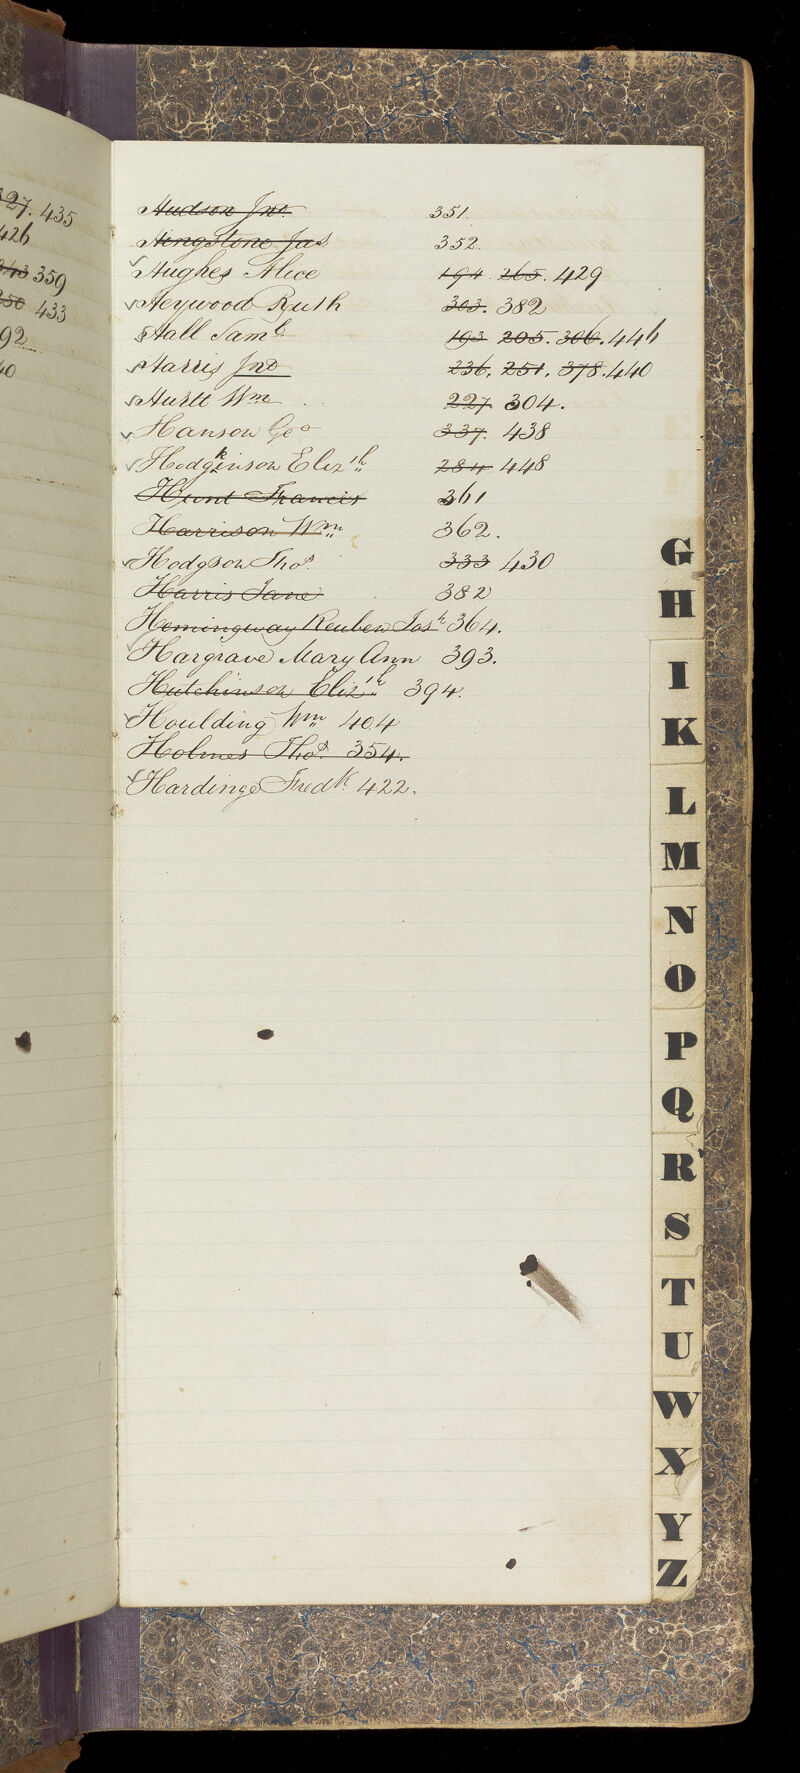 327. 435
426
343 359
350 433
92
40
Hudson Jno. 351.
Hingstone Jas 352
Hughes Alice 194. 265. 429
Heywood Ruth 303. 382
Hall Saml 193 205. 306. 446
Harris Jno 236. 251. 378. 440
Hurtt Wm 227 304.
Hanson Geo 337. 438
Hodgkinson Elizth 284 448
Hunt Francis 361
Harrison Wm 362.
Hodgson Thos. 333 430
Harris Jane 382
Hemingway Reuben Josh 364.
Hargrave Mary Ann 393.
Hutchinson Elizth 394.
Houlding Wm 404
Holmes Thos. 354.
Hardinge Fredk. 422.
G
H
I
K
L
M
N
O
P
Q
R
S
T
U
W
X
Y
Z